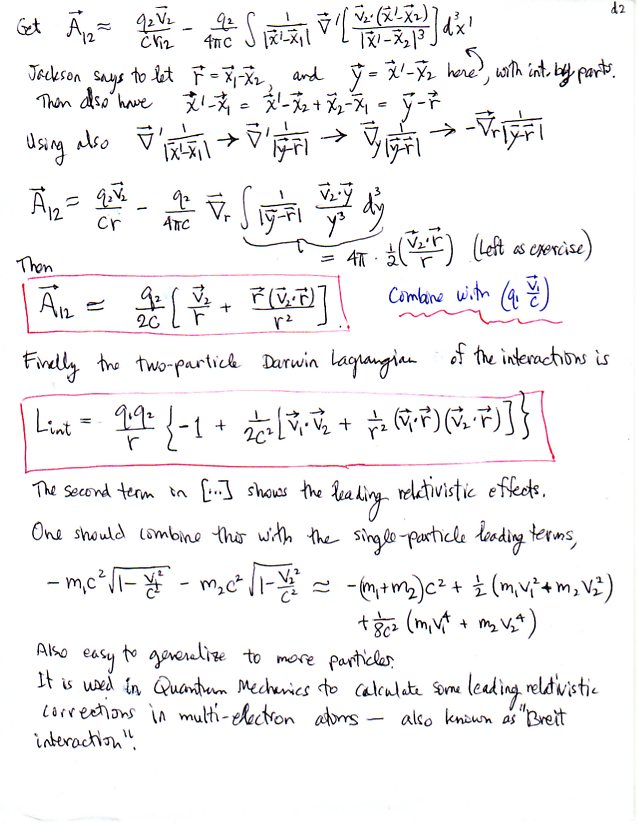 d2
Get $\vec{A}_{12} \approx \frac{q_2 \vec{v}_2}{c r_{12}} - \frac{q_2}{4\pi c} \int \frac{1}{|\vec{x}'-\vec{x}_1|} \vec{\nabla}' \left[ \frac{\vec{v}_2 \cdot (\vec{x}'-\vec{x}_2)}{|\vec{x}'-\vec{x}_2|^3} \right] d^3x'$
Jackson says to let $\vec{r} = \vec{x}_1 - \vec{x}_2$, and $\vec{y} = \vec{x}' - \vec{x}_2$ here, with int. by parts.
Then also have $\vec{x}' - \vec{x}_1 = \vec{x}' - \vec{x}_2 + \vec{x}_2 - \vec{x}_1 = \vec{y} - \vec{r}$
Using also $\vec{\nabla}' \frac{1}{|\vec{x}'-\vec{x}_1|} \to \vec{\nabla}' \frac{1}{|\vec{y}-\vec{r}|} \to \vec{\nabla}_y \frac{1}{|\vec{y}-\vec{r}|} \to -\vec{\nabla}_r \frac{1}{|\vec{y}-\vec{r}|}$
$\vec{A}_{12} = \frac{q_2 \vec{v}_2}{c r} - \frac{q_2}{4\pi c} \vec{\nabla}_r \int \frac{1}{|\vec{y}-\vec{r}|} \frac{\vec{v}_2 \cdot \vec{y}}{y^3} d^3y$
$= 4\pi \cdot \frac{1}{2} \left( \frac{\vec{v}_2 \cdot \vec{r}}{r} \right)$ (Left as exercise)
Then
$\vec{A}_{12} \simeq \frac{q_2}{2c} \left[ \frac{\vec{v}_2}{r} + \frac{\vec{r} (\vec{v}_2 \cdot \vec{r})}{r^2} \right]$ Combine with $(q_1 \frac{\vec{v}_1}{c})$
Finally the two-particle Darwin Lagrangian of the interactions is
$L_{int} = \frac{q_1 q_2}{r} \left\{ -1 + \frac{1}{2c^2} \left[ \vec{v}_1 \cdot \vec{v}_2 + \frac{1}{r^2} (\vec{v}_1 \cdot \vec{r})(\vec{v}_2 \cdot \vec{r}) \right] \right\}$
The second term in [...] shows the leading relativistic effects.
One should combine this with the single-particle leading terms,
$-m_1c^2 \sqrt{1 - \frac{v_1^2}{c^2}} - m_2c^2 \sqrt{1 - \frac{v_2^2}{c^2}} \approx -(m_1+m_2)c^2 + \frac{1}{2}(m_1v_1^2 + m_2v_2^2)$
$+ \frac{1}{8c^2} (m_1v_1^4 + m_2v_2^4)$
Also easy to generalize to more particles.
It is used in Quantum Mechanics to calculate some leading relativistic
corrections in multi-electron atoms – also known as "Breit
interaction".